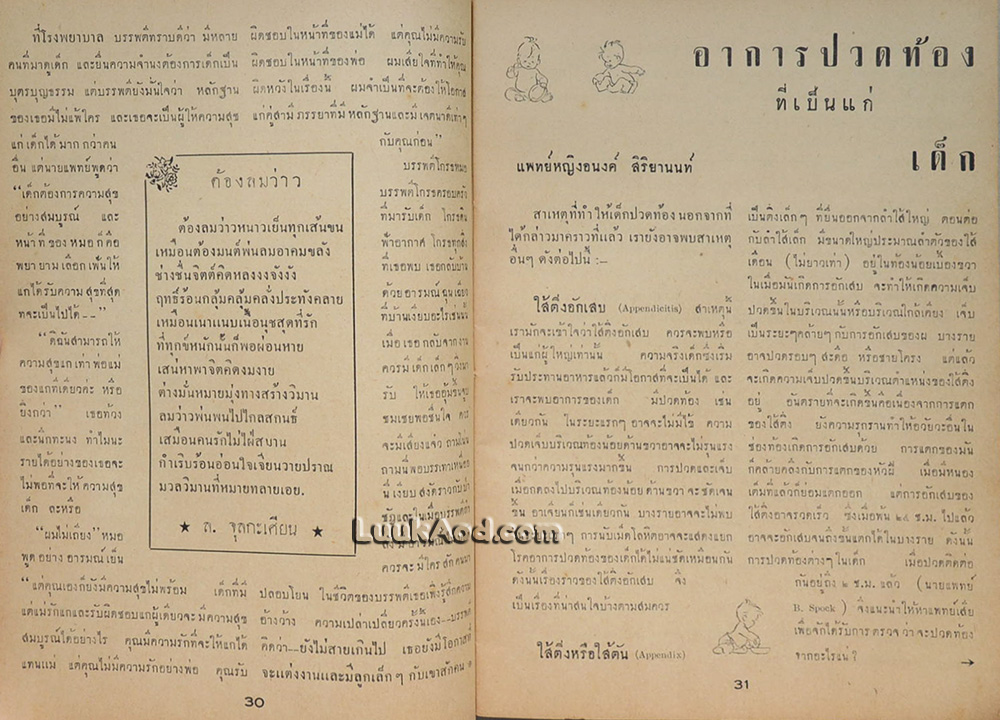 ที่โรงพยาบาล บรรพตีทราบดีว่า มีหลาย
คนที่มาดูเด็ก และยื่นความจำนงต้องการเด็กเป็น
บุตรบุญธรรม แต่บรรพตียังมั่นใจว่า หลักฐาน
ของเธอมีไม่แพ้ใคร และเธอจะเป็นผู้ให้ความสุข
แก่เด็กได้มาก กว่าคน
อื่น แต่นายแพทย์พูดว่า
“เด็กต้องการความสุข
อย่างสมบูรณ์ และ
หน้าที่ของหมอก็คือ
พยายามเลือกเฟ้นให้
แกได้รับความสุขที่สุด
ที่จะเป็นไปได้--”
“ดิฉันสามารถให้
ความสุขแกเท่าพ่อแม่
ของแกทีเดียวค่ะ หรือ
ยิ่งกว่า” เธอท้วง
และนึกทะนง ทำไมนะ
รายได้อย่างของเธอจะ
ไม่พอที่จะให้ความสุข
เด็ก ละหรือ
“ผมไม่เถียง” หมอ
พูด อย่าง อารมณ์เย็น
“แต่คุณเองก็ยังมีความสุขไม่พร้อม เด็กที่มี
แต่แม่รักแกและรับผิดชอบแกผู้เดียวจะมีความสุข
สมบูรณ์ได้อย่างไร คุณมีความรักที่จะให้แกได้
แทนแม่ แต่คุณไม่มีความรักอย่างพ่อ คุณรับ
ผิดชอบในหน้าที่ของแม่ได้ แต่คุณไม่มีความรับ
ผิดชอบในหน้าที่ของพ่อ ผมเสียใจที่ทำให้คุณ
ผิดหวังในเรื่องนี้ ผมจำเป็นที่จะต้องให้โอกาส
แก่คู่สามี ภรรยาที่มี หลักฐานและมีเจตนาดีเท่าๆ
กับคุณก่อน”
บรรพตีโกรธหมอ
บรรพตีโกรธครอบครัว
ที่มารับเด็ก โกรธดิน
ฟ้าอากาศ โกรธทุกสิ่ง
ที่เธอพบ เธอกลับบ้าน
ด้วยอารมณ์ฉุนเฉียว
ที่บ้านเงียบอะไรเช่นนี้
เมื่อเธอกลับจากงาน
ควรมีเด็กเล็กๆวิ่งมา
รับ ให้เธออุ้มชูเชย
ชมเชยพอชื่นใจ ควร
จะมีเสียงแจ๋ว ถามโน่น
ถามนี่พอบรรเทาเหนื่อย
ควรจะ มีใคร สักคนมา
ปลอบโยน ในชีวิตของบรรพตีเธอเพิ่งรู้สึกความ
อ้างว้าง ความเปล่าเปลี่ยวครั้งนี้เอง--บรรพตี
คิดว่า--ยังไม่สายเกินไป เธอยังมีโอกาสที่
จะแต่งงานและมีลูกเล็กๆ กับเขาสักคน
ต้องลมว่าว
ต้องลมว่าวหนาวเย็นทุกเส้นขน
เหมือนต้องมนต์พ่นลมอาคมขลัง
ช่างชื่นจิตต์คิดหลงงงจังงัง
ฤทธิ์ร้อนกลุ้มคลุ้มคลั่งประทังคลาย
เหมือนเนาแนบเนื้อนุชสุดที่รัก
ที่ทุกข์หนักนั้นก็พอผ่อนหาย
เสน่ห์หาพาจิตคิดงมงาย
ต่างมั่นหมายมุ่งทางสร้างวิมาน
ลมว่าวห่นพนไปไกลสกนธ์
เสมือนคนรักไม่ใฝ่สมาน
กำเริบร้อนอ่อนใจเจียนวายปราณ
มวลวิมานที่หมายทลายเอย.
★ ล. จุลกะเศียน ★
30
อาการปวดท้อง
ที่เป็นแก่
เด็ก
แพทย์หญิงอนงค์ สิริยานนท์
สาเหตุที่ทำให้เด็กปวดท้อง นอกจากที่
ได้กล่าวมาคราวที่แล้ว เรายังอาจพบสาเหตุ
อื่นๆ ดังต่อไปนี้ :—
ไส้ติ่งอักเสบ (Appendicitis) สาเหตุนี้
เรามักจะเข้าใจว่าไส้ติ่งอักเสบ ควรจะพบหรือ
เป็นแก่ผู้ใหญ่เท่านั้น ความจริงเด็กซึ่งเริ่ม
รับประทานอาหารแล้วก็มีโอกาสที่จะเป็นได้ และ
เราจะพบอาการของเด็ก มีปวดท้อง เช่น
เดียวกัน ในระยะแรกๆ อาจจะไม่มีไข้ ความ
ปวดเจ็บบริเวณท้องน้อยด้านขวาอาจจะไม่รุนแรง
จนกว่าความรุนแรงมากขึ้น การปวดและเจ็บ
เมื่อกดลงไปบริเวณท้องน้อย ด้านขวา จะชัดเจน
ขึ้น อาเจียนก็เช่นเดียวกัน บางรายอาจจะไม่พบ
การนับเม็ดโลหิตอาจจะแสดงแยก
โรคอาการปวดท้องของเด็กได้ไม่แน่ชัดเหมือนกัน
ดังนั้นเรื่องราวของไส้ติ่งอักเสบ จึง
เป็นเรื่องที่น่าสนใจบ้างตามสมควร
ไส้ติ่งหรือไส้ตัน (Appendix)
เป็นติ่งเล็กๆ ที่ยื่นออกจากลำไส้ใหญ่ ตอนต่อ
กับลำไส้เล็ก มีขนาดใหญ่ประมาณลำตัวของไส้
เดือน (ไม่ยาวเท่า) อยู่ในท้องน้อยเบื้องขวา
ในเมื่อมันเกิดการอักเสบ จะทำให้เกิดความเจ็บ
ปวดขึ้นในบริเวณนั้นหรือบริเวณใกล้เคียง เจ็บ
เป็นระยะๆคล้ายๆ กับการอักเสบของ บางราย
อาจปวดรอบๆ สะดือ หรือชายโครง แต่แล้ว
จะเกิดความเจ็บปวดขึ้นบริเวณตำแหน่งของไส้ติ่ง
อยู่ อันตรายที่จะเกิดขึ้นคือเนื่องจากการแตก
ของไส้ติ่ง ยังความรุกรานทำให้อวัยวะอื่นใน
ช่องท้องเกิดการอักเสบด้วย การแตกของมัน
ก็คล้ายคลึงกับการแตกของหัวฝี เมื่อมีหนอง
เต็มที่แล้วก็ย่อมแตกออก แต่การอักเสบของ
ไส้ติ่งอาจรวดเร็ว ซึ่งเมื่อพ้น ๒๔ ช.ม. ไปแล้ว
อาจจะอักเสบจนถึงขั้นแตกได้ในบางราย ดังนั้น
การปวดท้องต่างๆ ในเด็ก เมื่อปวดติดต่อ
กันอยู่ถึง ๒ ช.ม. แล้ว (นายแพทย์
B. Spock) จึงแนะนำให้หาแพทย์เสีย
เพื่อจักได้รับการ ตรวจ ว่า จะปวดท้อง
จากอะไรแน่ ?
→
31
LuukAod.com